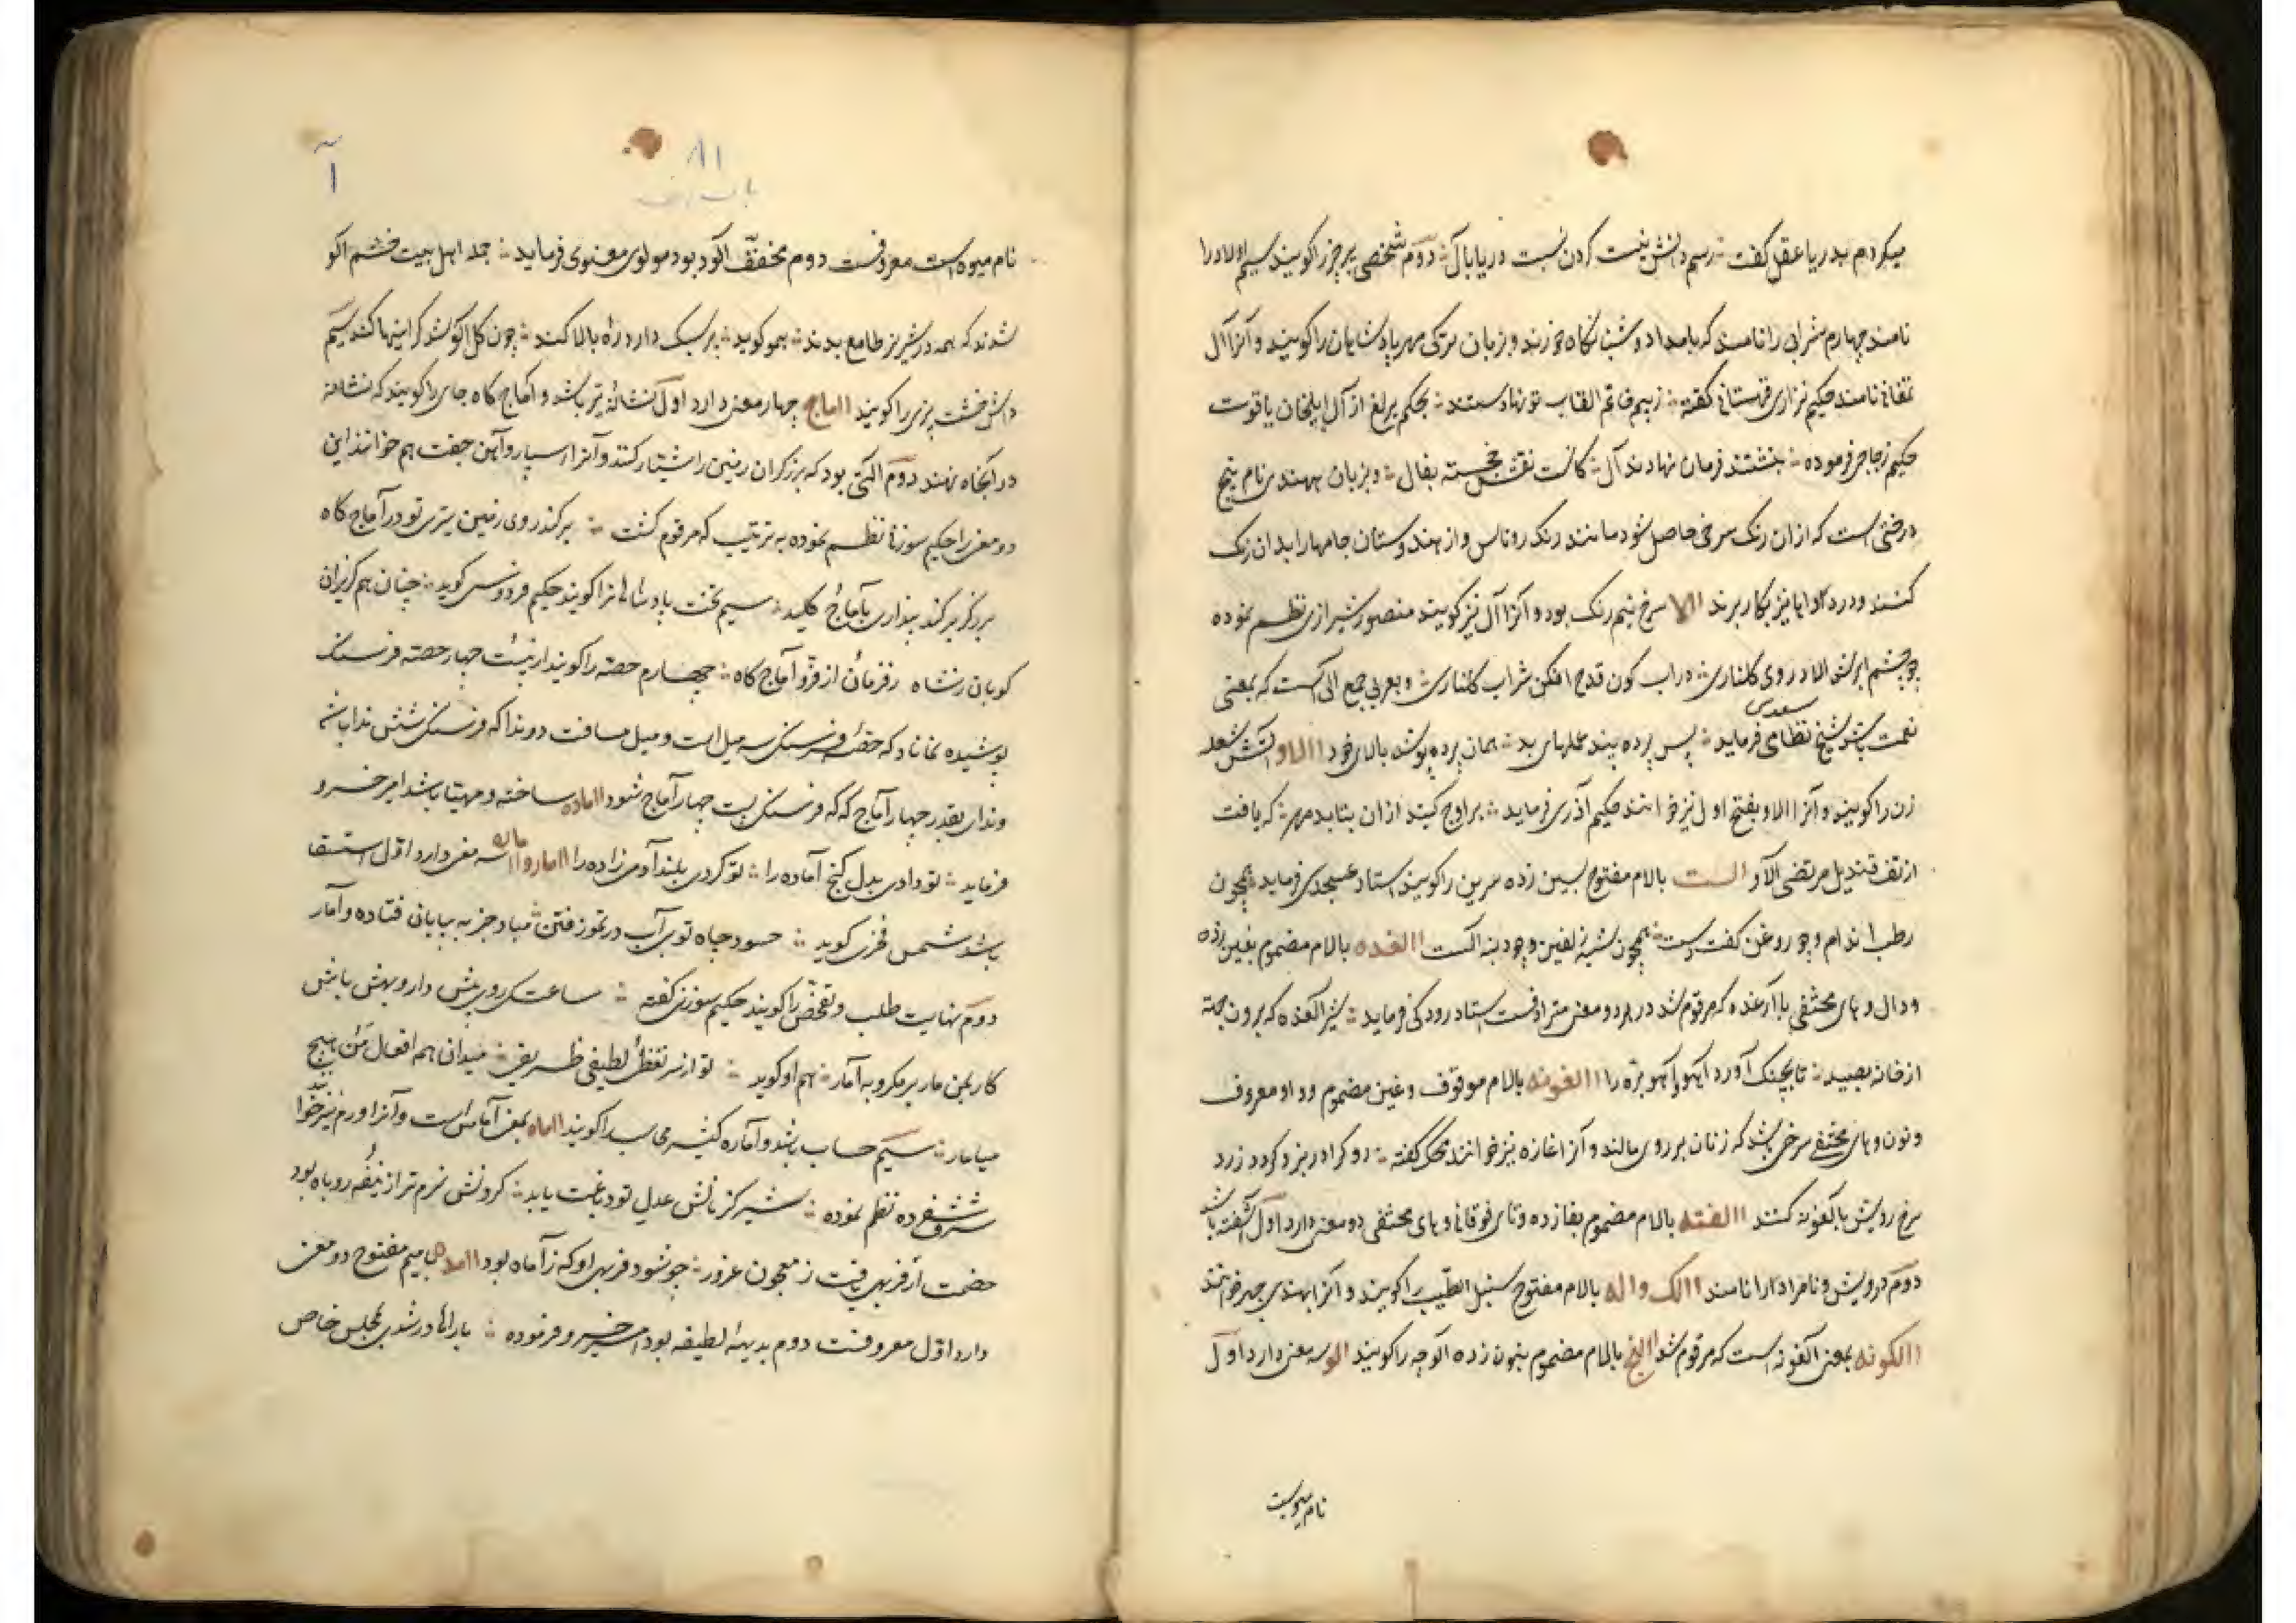 میکردم بدریا عقل گفت ؛ رسم دانش نیست کردن نسبت دریا بآل ؛ دوم شخصی پرچرز را کویند سیم اولاد را
نامند چهارم شرابی را نامند که بامداد و شبانکاه خورند و بزبان ترکی مهر پادشاهان را کویند و آنرا آل
تمغا نیز نامند حکیم نزاری قهستانی گفته ؛ زبیم خاتم القاب تو نهادستند ؛ بحکم یرلغ از آل ایلخان یاقوت
حکیم زجاجی فرموده ؛ بنشتند فرمان نهادند آل ؛ کانت نقش خجسته بفال ؛ و بزبان هندی نام بیخ
درختی است که از ان رنک سرخی حاصل شود مانند رنک روناس و از هندوستان جامها را بدان رنک
کنند و در دواها نیز بکار برند آلا سرخ نیم رنک بود و آنرا آل نیز کویند منصور شیرازی نظم نموده
چو چشم ابر شد آلا در روی کلناری ؛ در اب کون قدح افکن شراب کلناری ؛ و بعربی جمع الی است که بمعنی
سعدی
نعمت باشد شیخ نظامی فرماید ؛ پس پرده بیند عملهای بد ؛ همان پرده پوشد بالای خود آلاو آتش شعله
زن را کویند و آنرا الاو بفتح اول نیز خوانند حکیم آذری فرماید ؛ بر اوج کنبد ازان بتابد مهر ؛ که یافت
از تف قندیل مرتضی آلاو الست بالام مفتوح بسین زده سرین را کویند استاد عسجدی فرماید ؛ همچون
رطب اندام و چو روغن کفت ؛ همچون شبه زلفین و چو دنبه الست آلغده بالام مضموم بغین زده
و دال و های مختفی با آرغده که مرقوم شد در هر دو معنی مترادفست استاد رودکی فرماید ؛ شیر آلغده که برون جهد
از خانه بصید ؛ تا بچنک آورد آهو و آهو بره را آلغونه بالام موقوف و غین مضموم و واو معروف
و نون و های مختفی سرخی باشد که زنان بر روی مالند و آنرا غازه نیز خوانند محک گفته ؛ رو کرا در بزد کردد زرد
سرخ رویش بآلغونه کنند آلفته بالام مضموم بفا زده و تای فوقانی و های مختفی دو معنی دارد اول آشفته باشد
دوم درویش و نامراد را نامند آلک و اله بالام مفتوح سنبل الطیب را کویند و آنرا بهندی چهر خوانند
آلکونه بمعنی آلغونه است که مرقوم شد آلنج بالام مضموم بنون زده آلوچه را کویند آلو سه معنی دارد اول
نام میوه ایست
۸۱
آ
باب الف
نام میوه است معروفست دوم مخفف آلود بود مولوی معنوی فرماید ؛ جمله اهل بیت خشم آلو
شدند که همه در شیر بز طامع بدند ؛ همو کوید ؛ پر سبک دارد ره بالا کند ؛ چون کل آلو شد کرانیها کند سیم
داش خشت پزی را کویند آماج چهار معنی دارد اول نشانهٔ تیر باشد و آماج کاه جای را کویند که نشانه
در آنجا نهند دوم آلتی بود که برزکران زمین را شیار کنند و آنرا سپار و آهن جفت هم خوانند این
دو معنی را حکیم سوزنی نظم نموده به ترتیب که مرقوم کشت ؛ بر کند روی زمین تیر تو در آماج کاه
برزکر بر کند پنداری بآماج و کلند ؛ سیم تخت پادشاهان را کویند حکیم فردوسی کوید ؛ چنان هم کرازان
کویان ز شاه ز فرمان از فر و آماج کاه ؛ چهارم حصه را کویند از بیست چهار حصه فرسنک
پوشیده نماناد که حصهٔ فرسنکی سه میل است و میل مسافت دو ندا که فرسنکی شش ندا باشد
و ندای بقدر چهار آماج که که فرسنکی بیست چهار آماج شود آماده ساخته و مهیا باشد امیر خسرو
فرماید ؛ تو دادی بدل کنج آماده را ؛ تو کردی بلند آدمی زاده را آمار و آماره سه معنی دارد اول استسقا
باشد شمس فخری کوید ؛ حسود جاه تو بی آب در تموز فتن ؛ مباد جز به بیابانی فتاده و آمار
دوم نهایت طلب و تفحص را کویند حکیم سوزنی گفته ؛ ساعتکی روی بمنش دار و بهش باش
کار بمن مار بر مکرو به آمار ؛ هم او کوید ؛ تو از سر تفضل لطیفی ظریف ؛ میدان هم افعال من هیچ
میامار ؛ سیم حساب باشد و آماره کننده محاسب را کویند آماه بمعنی آماس است و آنرا ورم نیز خوانند
شرف شفروه نظم نموده ؛ شیر کز بالش عدل تو دباغت یابد ؛ کردنش نرم تر از نیفهٔ روباه بود
خصمت ار فربهی یافت ز معجون غرور ؛ چو شود فربهی او که ز آماه بود آمد میم مفتوح دو معنی
دارد اول معروفست دوم بدیهه لطیفه بود میر خسرو فرموده ؛ یا رب آنها در شدی بمجلس خاص